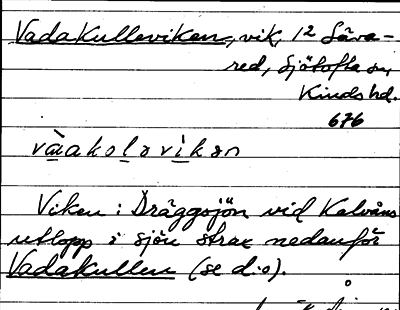 Vadakulleviken, vik, 12 Säva-
red, Sjötofta sn,
Kinds hd.
676
vàakolavìkan
Viken i Dräggsjön vid Kalvåns
utlopp i sjön strax nedanför
Vadakullen (se d:o).